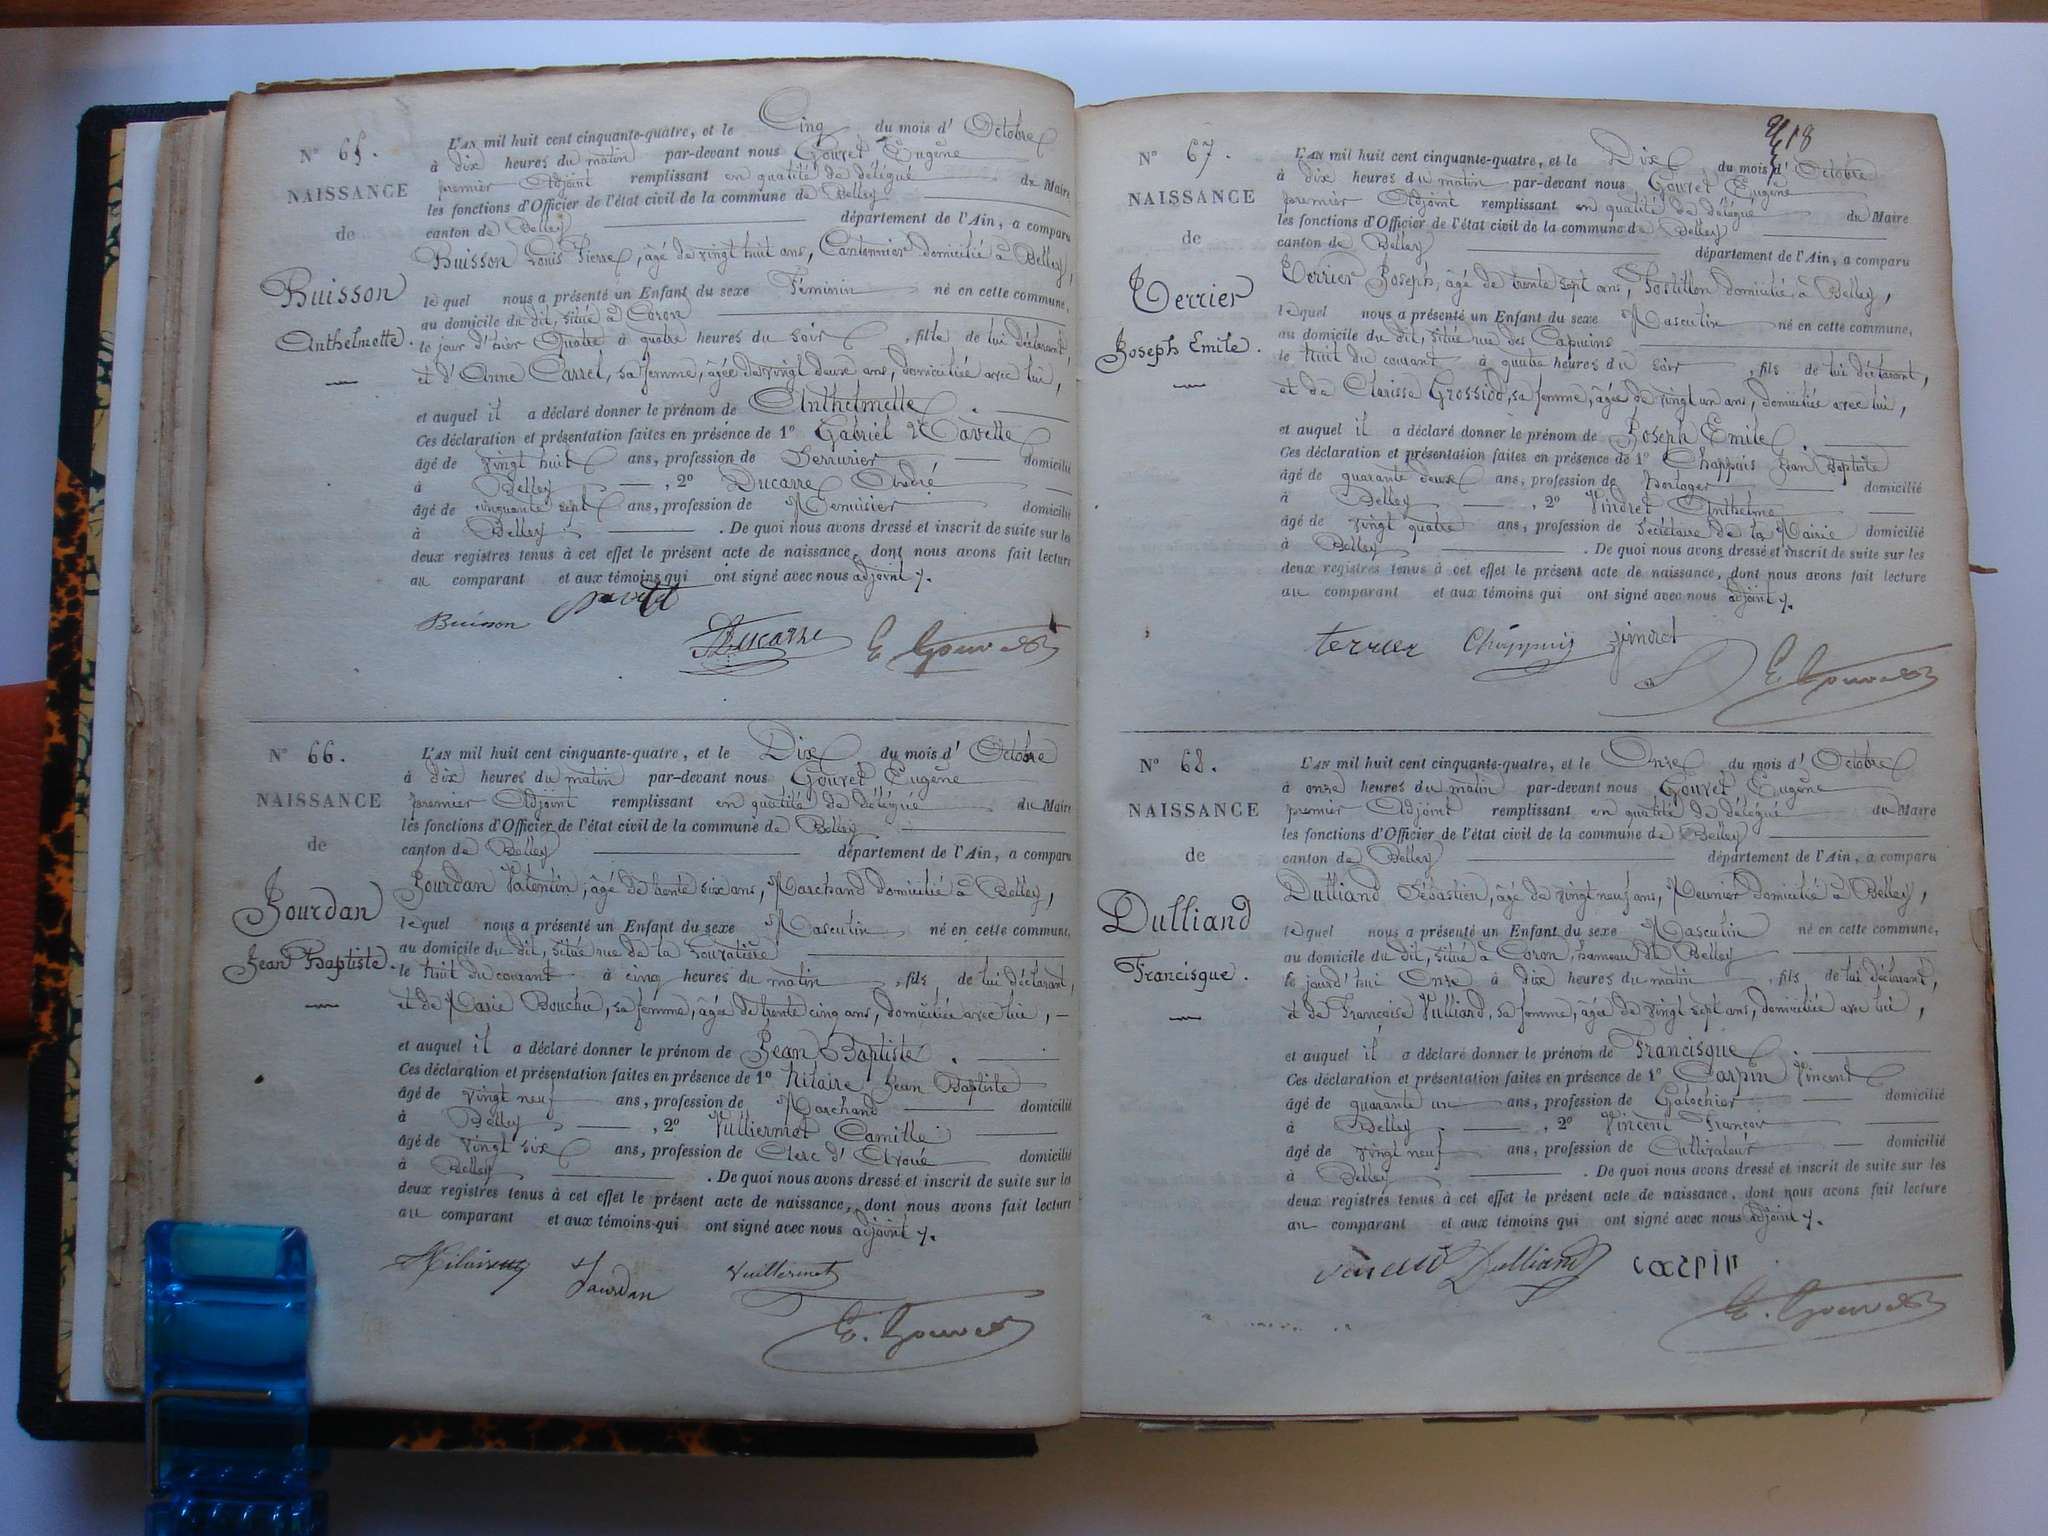 N° 65.
NAISSANCE
de
Buisson
Anthelmette.
L'AN mil huit cent cinquante-quatre, et le Cinq du mois d' Octobre
à dix heures du matin par-devant nous Gouvet Eugène
premier Adjoint remplissant en qualité de délégué du Maire
les fonctions d'Officier de l'état civil de la commune de Belley
canton de Belley département de l'Ain, a comparu
Buisson Louis Pierre, âgé de vingt huit ans, Cantonnier domicilié à Belley,
lequel nous a présenté un Enfant du sexe Féminin né en cette commune,
au domicile du dit, situé à Coron
le jour d'hier Quatre à quatre heures du soir, fille de lui déclarant,
et d'Anne Carrel, sa femme, âgée de vingt deux ans, domiciliée avec lui,
et auquel il a déclaré donner le prénom de Anthelmette.
Ces déclaration et présentation faites en présence de 1° Gabriel
âgé de vingt huit ans, profession de Serrurier domicilié
à Belley, 2° Ducarre André
âgé de cinquante sept ans, profession de Menuisier domicilié
à Belley. De quoi nous avons dressé et inscrit de suite sur les
deux registres tenus à cet effet le présent acte de naissance, dont nous avons fait lecture
au comparant et aux témoins qui ont signé avec nous adjoint.
Buisson
Ducarre E. Gouvet
N° 66.
NAISSANCE
de
Jourdan
Jean Baptiste.
L'AN mil huit cent cinquante-quatre, et le Dix du mois d' Octobre
à dix heures du matin par-devant nous Gouvet Eugène
premier Adjoint remplissant en qualité de délégué du Maire
les fonctions d'Officier de l'état civil de la commune de Belley
canton de Belley département de l'Ain, a comparu
Jourdan Valentin, âgé de trente six ans, Marchand domicilié à Belley,
lequel nous a présenté un Enfant du sexe Masculin né en cette commune,
au domicile du dit, situé rue de la
le huit du courant à cinq heures du matin, fils de lui déclarant,
et de Marie Bouchu, sa femme, âgée de trente cinq ans, domiciliée avec lui,
et auquel il a déclaré donner le prénom de Jean Baptiste.
Ces déclaration et présentation faites en présence de 1° Hilaire Jean Baptiste
âgé de vingt neuf ans, profession de Marchand domicilié
à Belley, 2° Vulliermet Camille
âgé de vingt six ans, profession de Clerc d'Avoué domicilié
à Belley. De quoi nous avons dressé et inscrit de suite sur les
deux registres tenus à cet effet le présent acte de naissance, dont nous avons fait lecture
au comparant et aux témoins qui ont signé avec nous adjoint.
Jourdan Vuillermet
E. Gouvet
18
N° 67.
NAISSANCE
de
Terrier
Joseph Emile.
L'AN mil huit cent cinquante-quatre, et le Dix du mois d' Octobre
à dix heures du matin par-devant nous Gouvet Eugène
premier Adjoint remplissant en qualité de délégué du Maire
les fonctions d'Officier de l'état civil de la commune de Belley
canton de Belley département de l'Ain, a comparu
Terrier Joseph, âgé de trente sept ans, Postillon domicilié à Belley,
lequel nous a présenté un Enfant du sexe Masculin né en cette commune,
au domicile du dit, situé rue des Capucins
le huit du courant à quatre heures du soir, fils de lui déclarant,
et de Clarisse Grossiod, sa femme, âgée de vingt un ans, domiciliée avec lui,
et auquel il a déclaré donner le prénom de Joseph Emile.
Ces déclaration et présentation faites en présence de 1° Chappuis Jean Baptiste
âgé de quarante deux ans, profession de horloger domicilié
à Belley, 2° Vindret Anthelme
âgé de vingt quatre ans, profession de Secrétaire de la Mairie domicilié
à Belley. De quoi nous avons dressé et inscrit de suite sur les
deux registres tenus à cet effet le présent acte de naissance, dont nous avons fait lecture
au comparant et aux témoins qui ont signé avec nous adjoint.
terrier Chappuis vindret
E. Gouvet
N° 68.
NAISSANCE
de
Dulliand
Francisque.
L'AN mil huit cent cinquante-quatre, et le Onze du mois d' Octobre
à onze heures du matin par-devant nous Gouvet Eugène
premier Adjoint remplissant en qualité de délégué du Maire
les fonctions d'Officier de l'état civil de la commune de Belley
canton de Belley département de l'Ain, a comparu
Dulliand Sébastien, âgé de vingt neuf ans, Meunier domicilié à Belley,
lequel nous a présenté un Enfant du sexe Masculin né en cette commune,
au domicile du dit, situé à Coron, hameau de Belley
le jourd'hui Onze à dix heures du matin, fils de lui déclarant,
et de Françoise Vulliard, sa femme, âgée de vingt sept ans, domiciliée avec lui,
et auquel il a déclaré donner le prénom de Francisque.
Ces déclaration et présentation faites en présence de 1° Carpin Vincent
âgé de quarante un ans, profession de Galochier domicilié
à Belley, 2° Vincent François
âgé de vingt neuf ans, profession de Cultivateur domicilié
à Belley. De quoi nous avons dressé et inscrit de suite sur les
deux registres tenus à cet effet le présent acte de naissance, dont nous avons fait lecture
au comparant et aux témoins qui ont signé avec nous adjoint.
Dulliand carpin
E. Gouvet